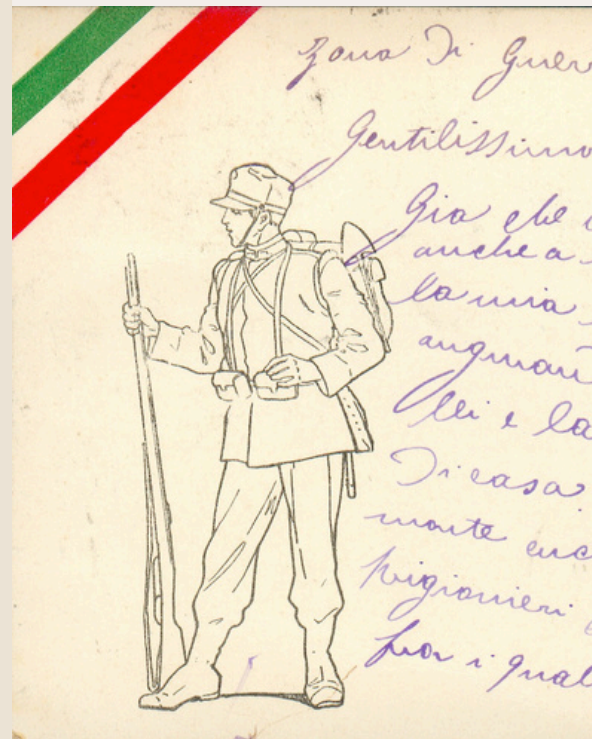 Zona Di Guer
Gentilissimo
Gia che
anche a
la mia
auguran
lei e la
Di casa
monte
prigionieri
per i qual